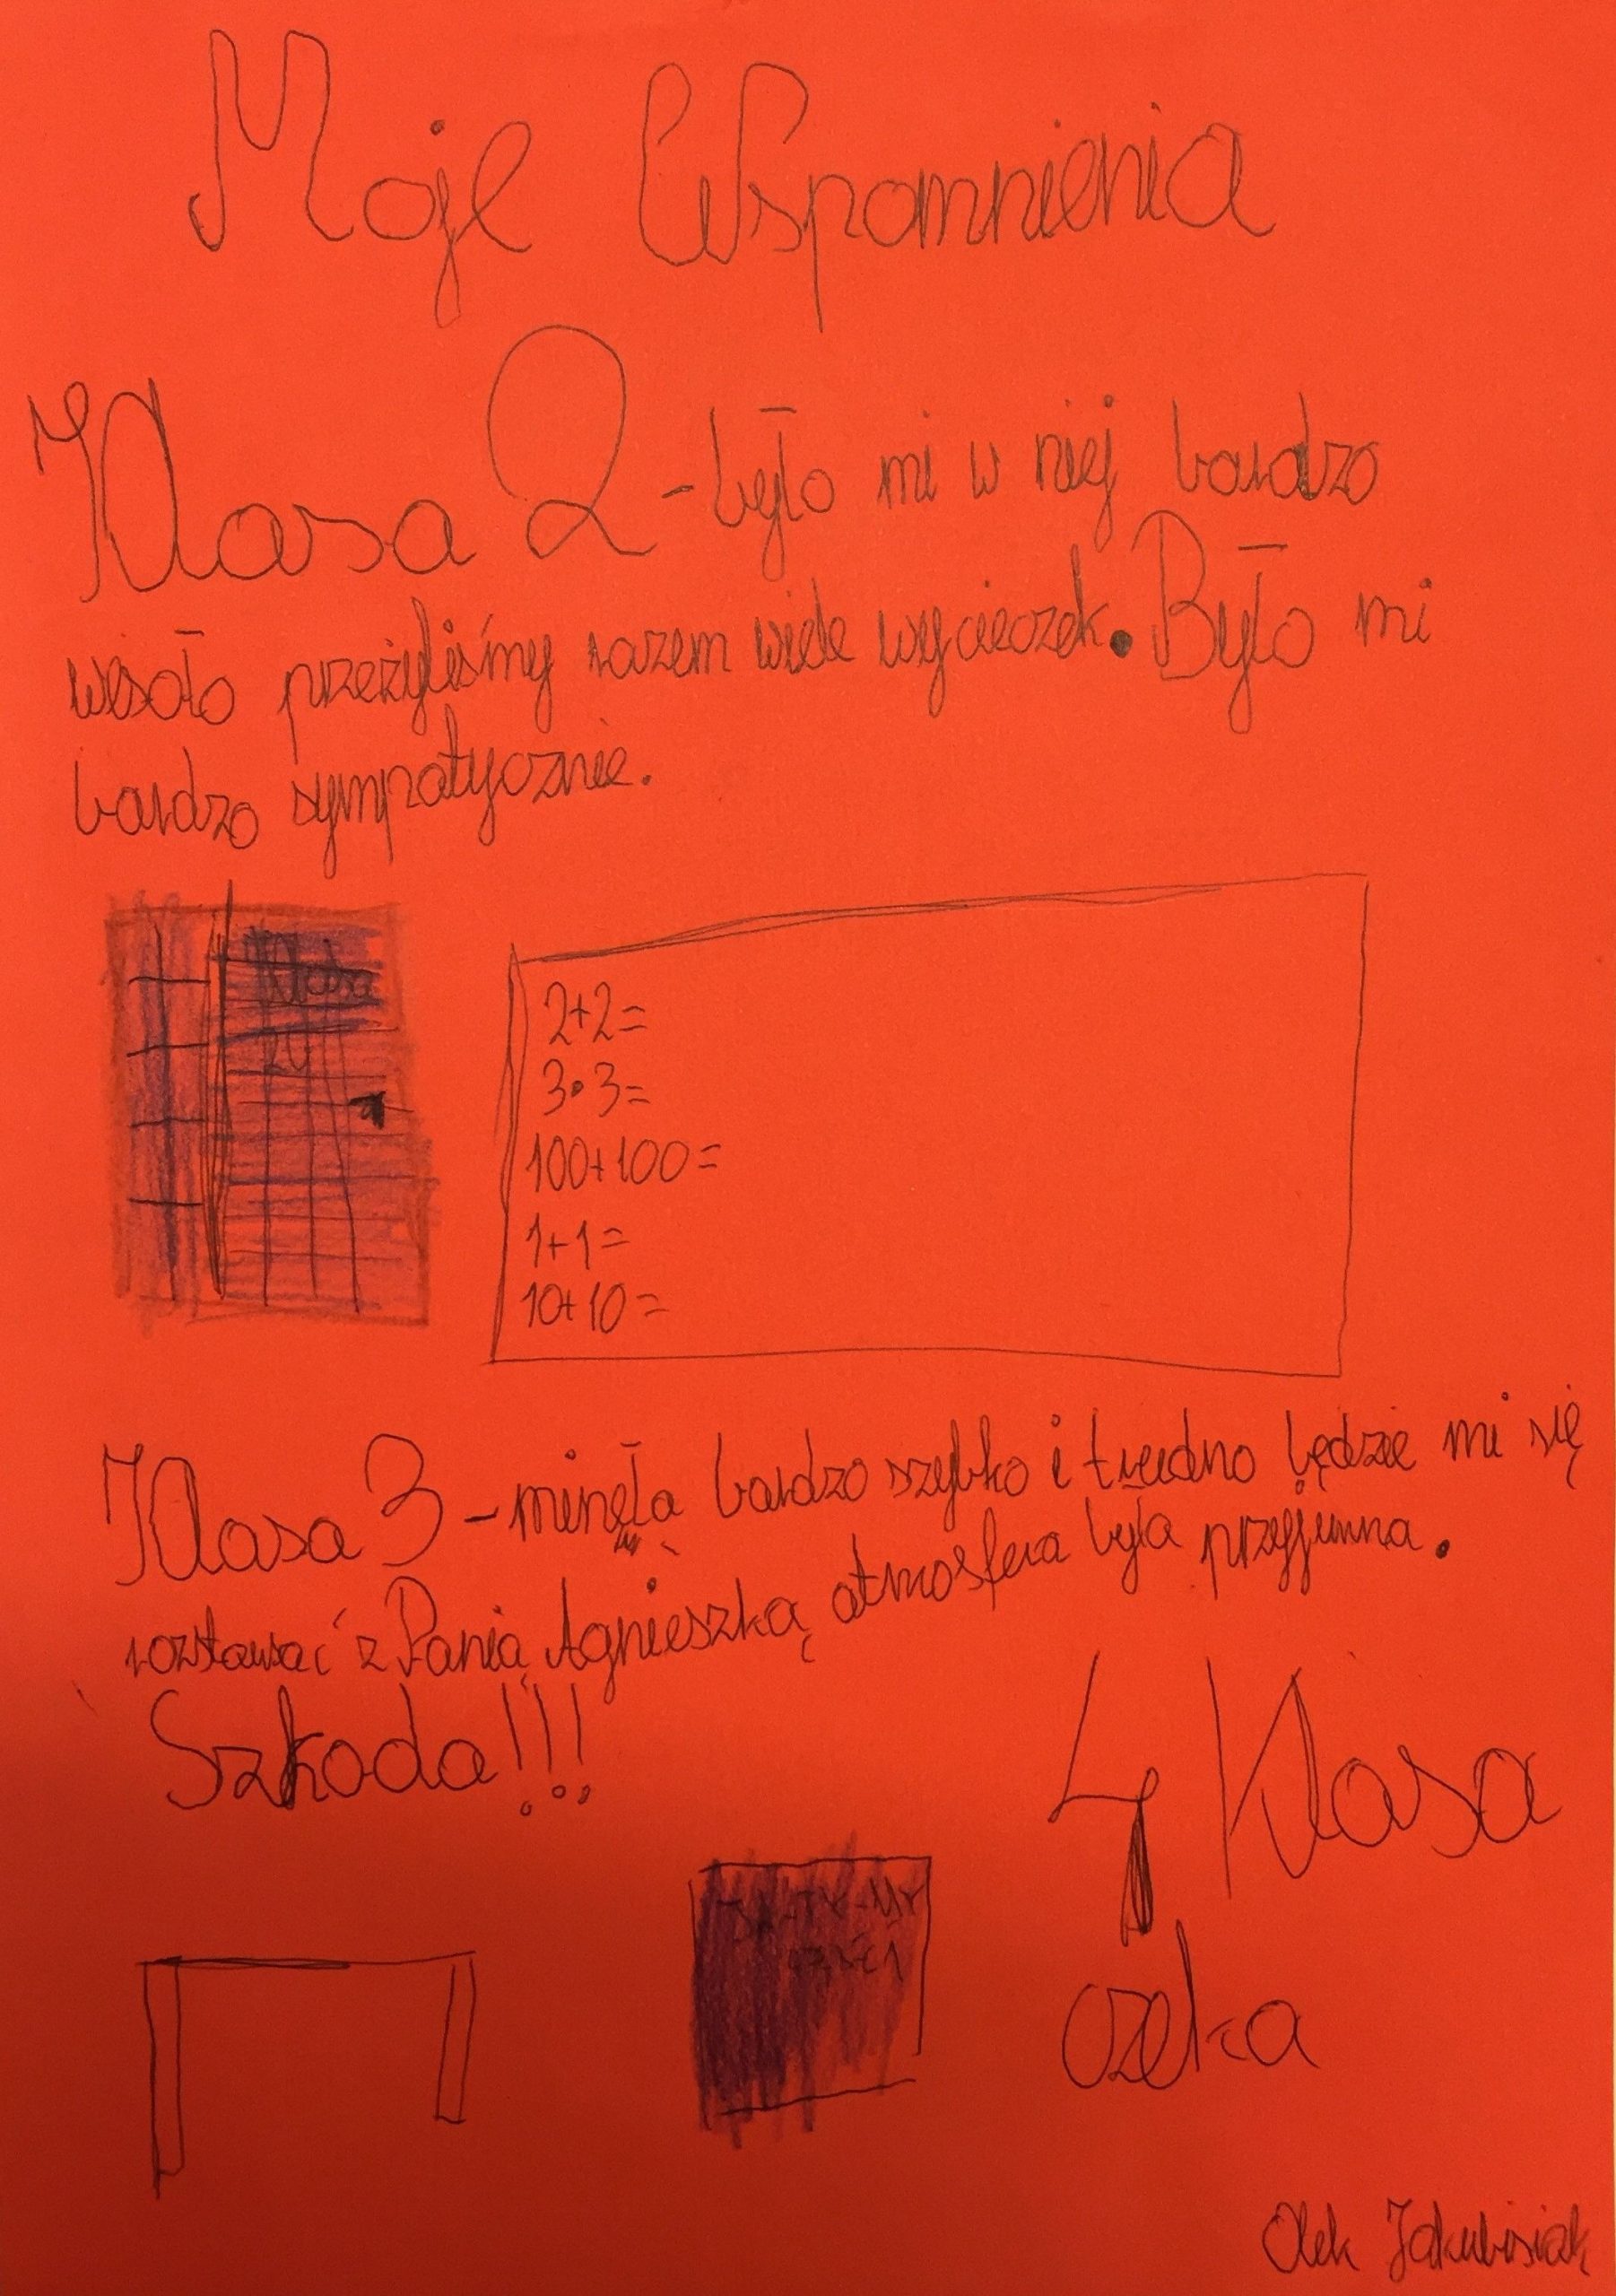 Moje Wspomnienia
Klasa 2 - było mi w niej bardzo
wesoło przeżyliśmy razem wiele wycieczek. Było mi
bardzo sympatycznie.
Klasa
2+2=
3•3=
100+100=
1+1=
10+10=
Klasa 3 - minęła bardzo szybko i trudno będzie mi się
rozstawać z Panią Agnieszką, atmosfera była przyjemna.
Szkoda!!!
4 Klasa
czeka
JA-TY-MY
Olek Jakubisiak